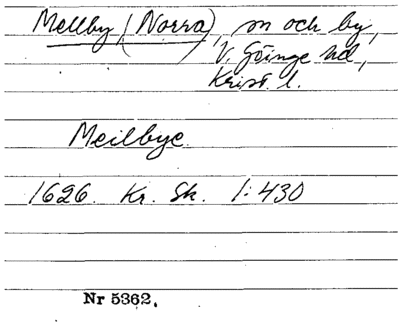 Mellby (Norra), sn och by,
V. Göinge hd,
Krist. l.
Meilbye
1626. Kr. Sk. 1:430
Nr 5362.